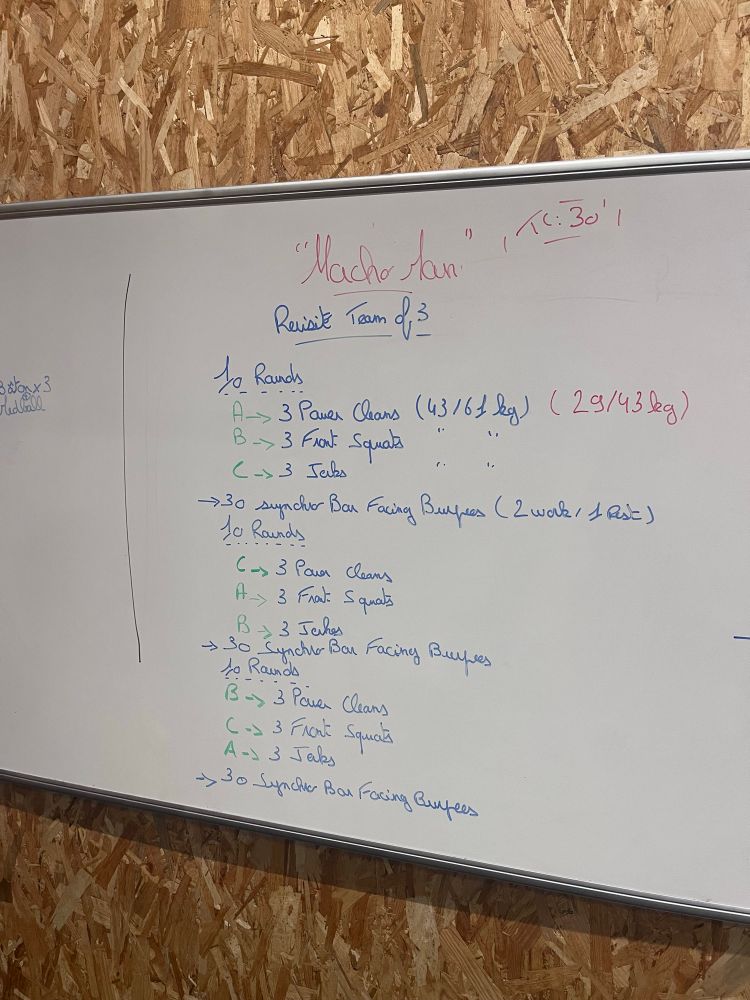 "Macho Man" , TC: 30' ,
Revisite Team of 3
x 3
10 Rounds
A -> 3 Power Cleans (43/61 kg) (29/43 kg)
B -> 3 Front Squats " "
C -> 3 Jerks " "
-> 30 synchro Bar Facing Burpees (2 work / 1 Rest)
10 Rounds
C -> 3 Power Cleans
A -> 3 Front Squats
B -> 3 Jerks
-> 30 Synchro Bar Facing Burpees
10 Rounds
B -> 3 Power Cleans
C -> 3 Front Squats
A -> 3 Jerks
-> 30 Synchro Bar Facing Burpees